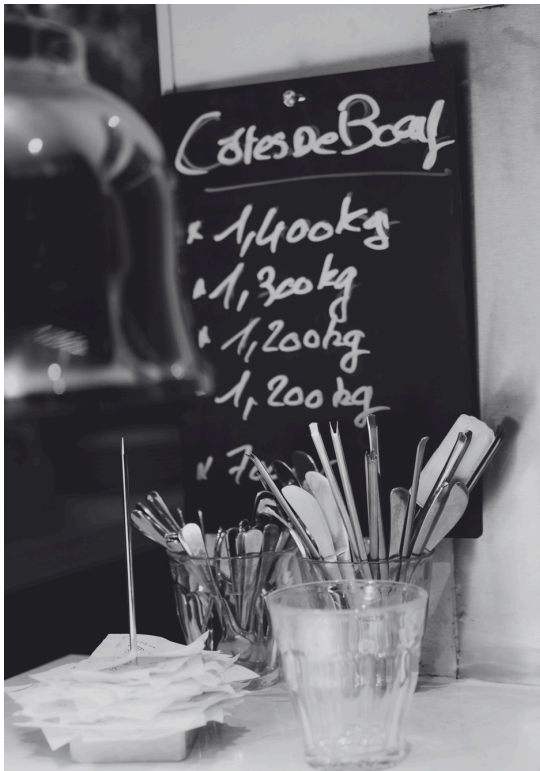 Côtes De Boeuf
x 1,400kg
x 1,300kg
x 1,200kg
1,200kg
x